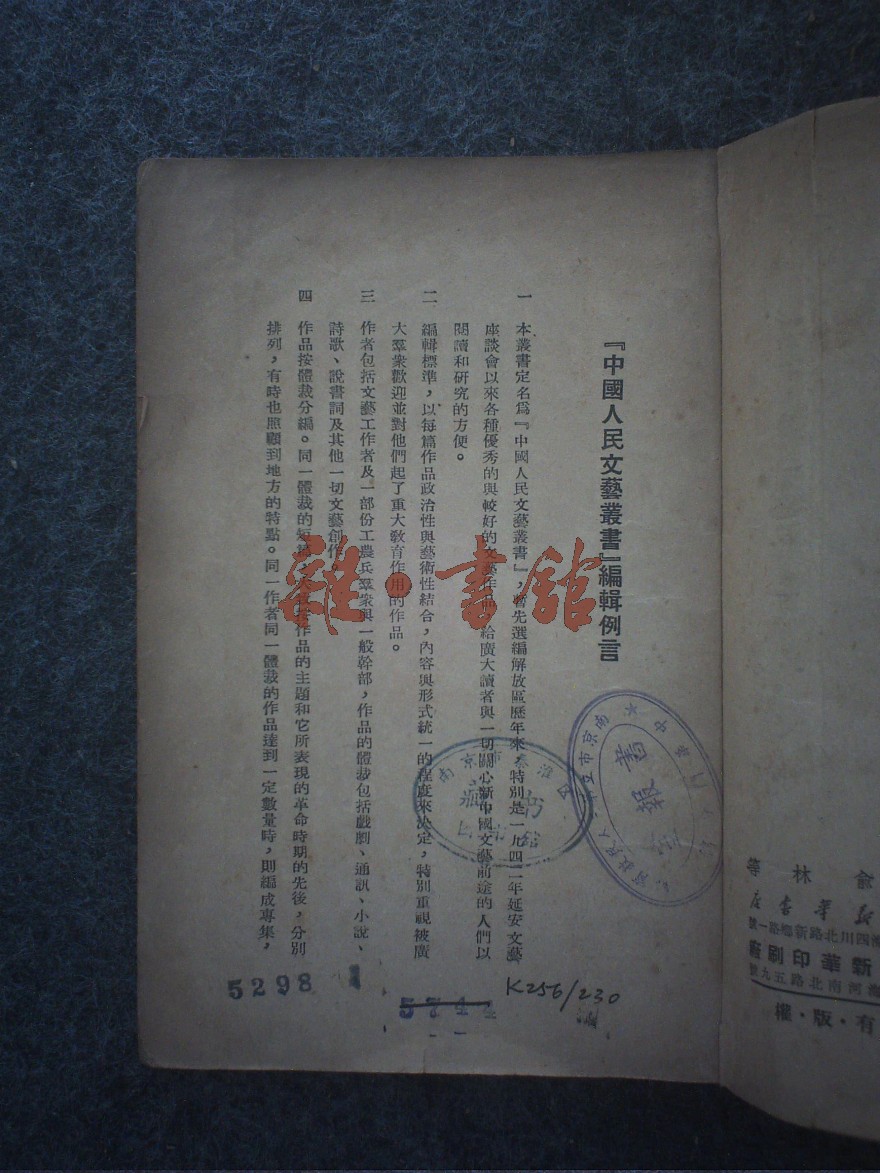 『中國人民文藝叢書』編輯例言
一　本叢書定名爲『中國人民文藝叢書』，暫先選編解放區歷年來，特別是一九四二年延安文藝
座談會以來各種優秀的與較好的文藝作品，給廣大讀者與一切關心新中國文藝前途的人們以
閱讀和研究的方便。
二　編輯標準，以每篇作品政治性與藝術性結合，內容與形式統一的程度來決定，特別重視被廣
大羣衆歡迎並對他們起了重大敎育作用的作品。
三　作者包括文藝工作者及一部份工農兵羣衆與一般幹部，作品的體裁包括戲劇、通訊、小說、
詩歌、說書詞及其他一切文藝創作。
四　作品按體裁分編。同一體裁的短篇，按作品的主題和它所表現的革命時期的先後，分別
排列，有時也照顧到地方的特點。同一作者同一體裁的作品達到一定數量時，則編成專集，
雜·書館
南京市
書報
南京市秦淮區
5298
1
574
K256/230
俞林等
新華書店
四川北路新鄉路一號
新華印刷廠
河南北路五九號
有·版·權